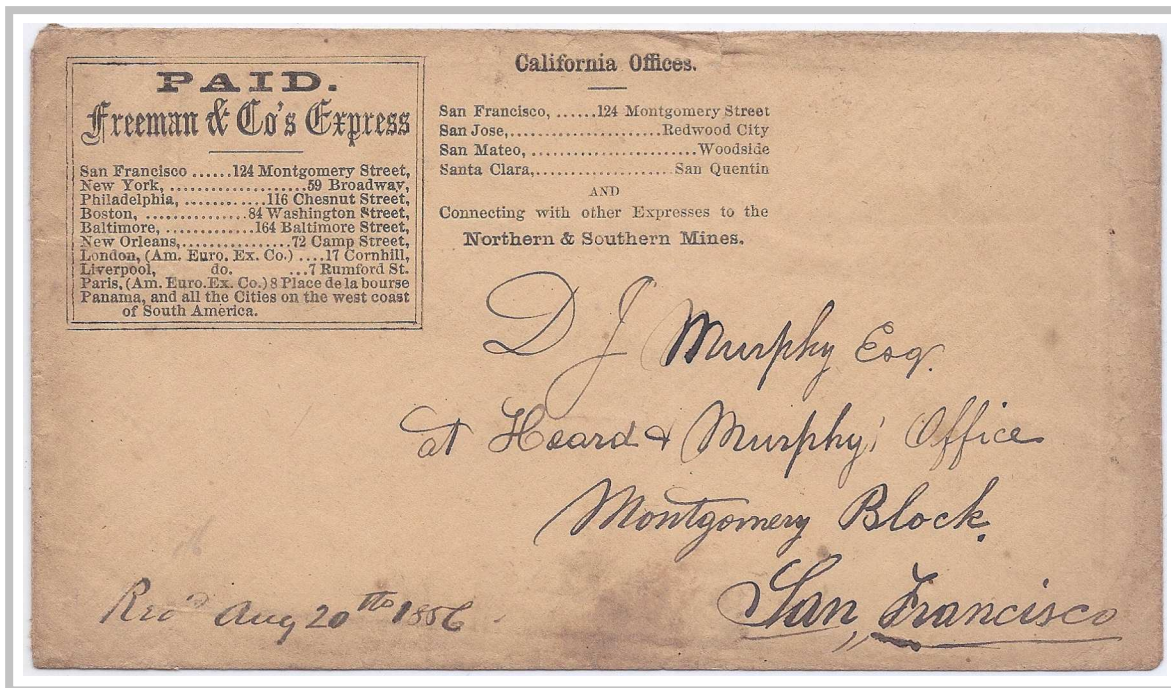 PAID.
Freeman & Co's Express
San Francisco ......124 Montgomery Street,
New York, ....................59 Broadway,
Philadelphia, ............116 Chesnut Street,
Boston, ...............84 Washington Street,
Baltimore, .............164 Baltimore Street,
New Orleans,................72 Camp Street,
London, (Am. Euro. Ex. Co.) ....17 Cornhill,
Liverpool, do. ...7 Rumford St.
Paris, (Am. Euro. Ex. Co.) 8 Place de la bourse
Panama, and all the Cities on the west coast
of South America.
California Offices.
San Francisco, ......124 Montgomery Street
San Jose,......................Redwood City
San Mateo,........................Woodside
Santa Clara,...................San Quentin
AND
Connecting with other Expresses to the
Northern & Southern Mines.
D J Murphy Esq.
at Heard & Murphy' Office
Montgomery Block.
San Francisco
Recd Aug 20th 1856